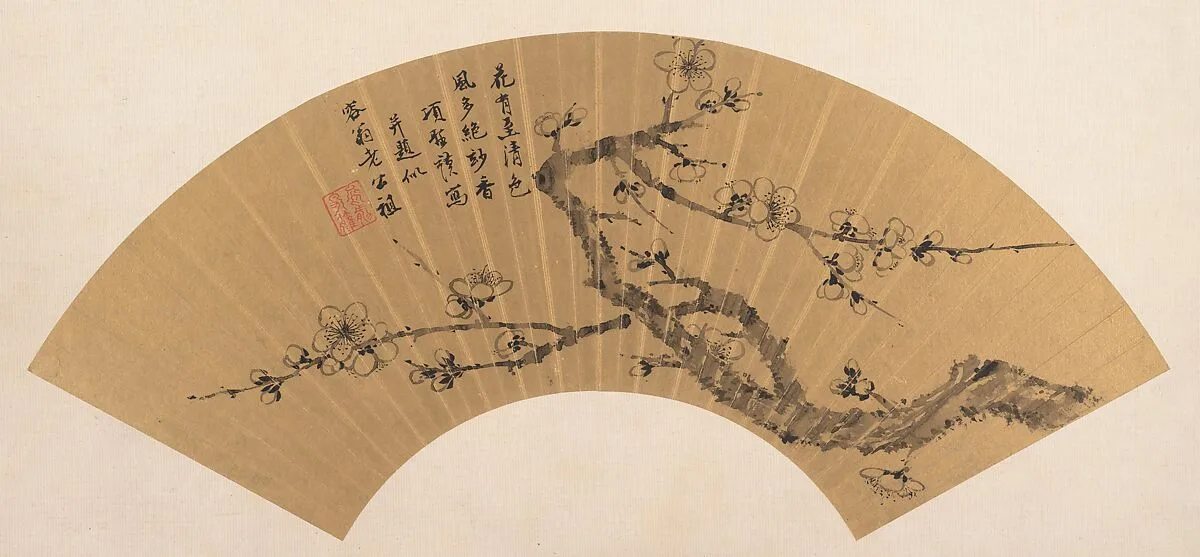 花有至清色
風多絕妙香
項聖謨寫
并題似
蓉翁老公祖